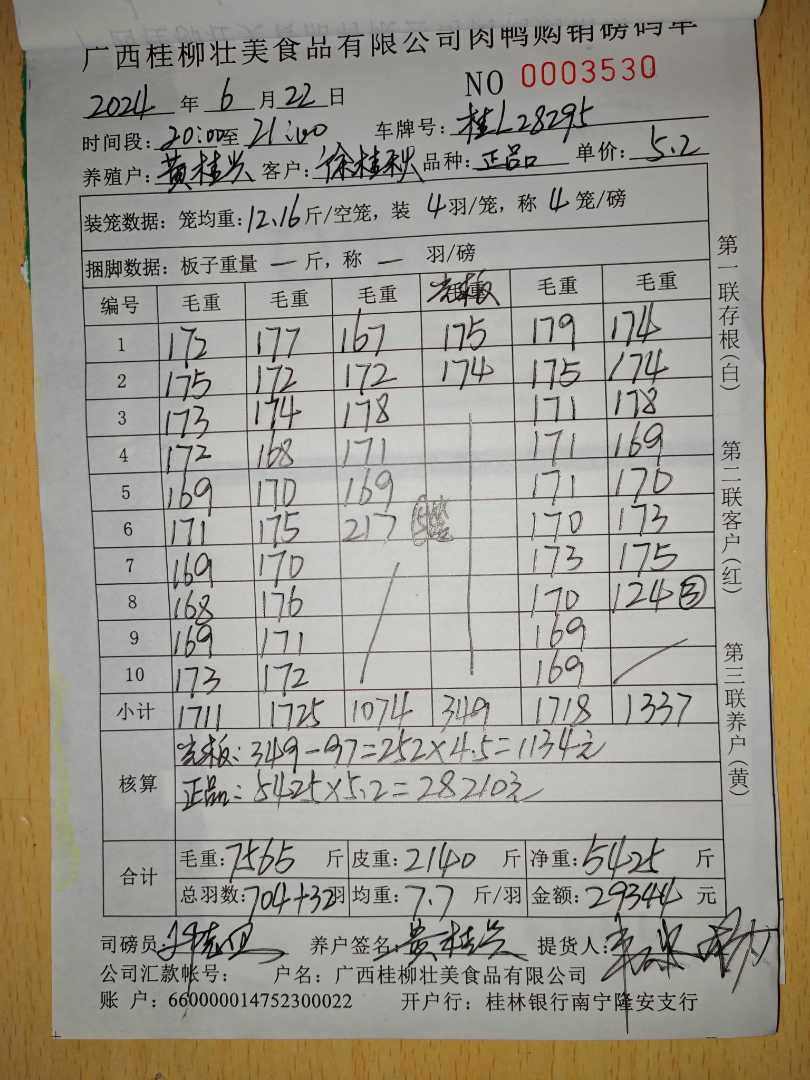 广西桂柳壮美食品有限公司肉鸭购销磅码单
NO 0003530
2024 年 6 月 22 日
时间段: 20:00 至 21:00 车牌号: 桂L28295
养殖户: 黄桂兴 客户: 徐桂秋 品种: 正品 单价: 5.2
装笼数据: 笼均重: 12.16 斤/空笼, 装 4 羽/笼, 称 4 笼/磅
捆脚数据: 板子重量 一 斤, 称 一 羽/磅
编号 毛重 毛重 毛重 毛重 毛重
1 172 177 167 175 179 174
2 175 172 172 174 175 174
3 173 174 178 171 178
4 172 168 171 171 169
5 169 170 169 171 170
6 171 175 217 170 173
7 169 170 173 175
8 168 176 170 124 ③
9 169 171 169
10 173 172 169
小计 1711 1725 1074 349 1718 1337
核算
349-97=252×4.5=1134元
正品: 5425×5.2=28210元
合计
毛重: 7565 斤 皮重: 2140 斤 净重: 5425 斤
总羽数: 704+32羽 均重: 7.7 斤/羽 金额: 29344 元
司磅员: 养户签名: 黄桂兴 提货人:
公司汇款帐号: 户名: 广西桂柳壮美食品有限公司
账 户: 660000014752300022 开户行: 桂林银行南宁隆安支行
第一联存根(白) 第二联客户(红) 第三联养户(黄)